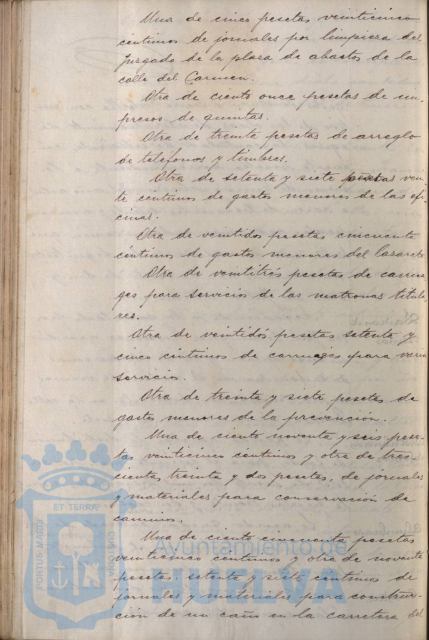 Una de cinco pesetas veinticinco
centimos de jornales por limpieza del
juzgado de la plaza de abastos de la
calle del Carmen.
Otra de ciento once pesetas de im-
presos de quintas.
Otra de treinta pesetas de arreglo
de telefonos y timbres.
Otra de setenta y siete pesetas vein
te centimos de gastos menores de las ofi
cinas.
Otra de veintidos pesetas cincuenta
céntimos de gastos menores del Lazareto
Otra de veintitrés pesetas de carrua
ges para servicio de las matronas titula
res.
Otra de veintidós pesetas setenta y
cinco centimos de carruages para varios
servicios.
Otra de treinta y siete pesetas de
gastos menores de la prevención.
Una de ciento noventa y seis pese-
tas veinticinco centimos y otra de tres-
cientas treinta y dos pesetas, de jornales
y materiales para conservación de
caminos.
Una de ciento cincuenta pesetas
veinticinco centimos y otra de noventa
pesetas setenta y siete centimos de
jornales y materiales para construc-
ción de un caño en la carretera del
PORTUS MARIS
ET TERRAE
CUSTODIA
Ayuntamiento de
HUELVA